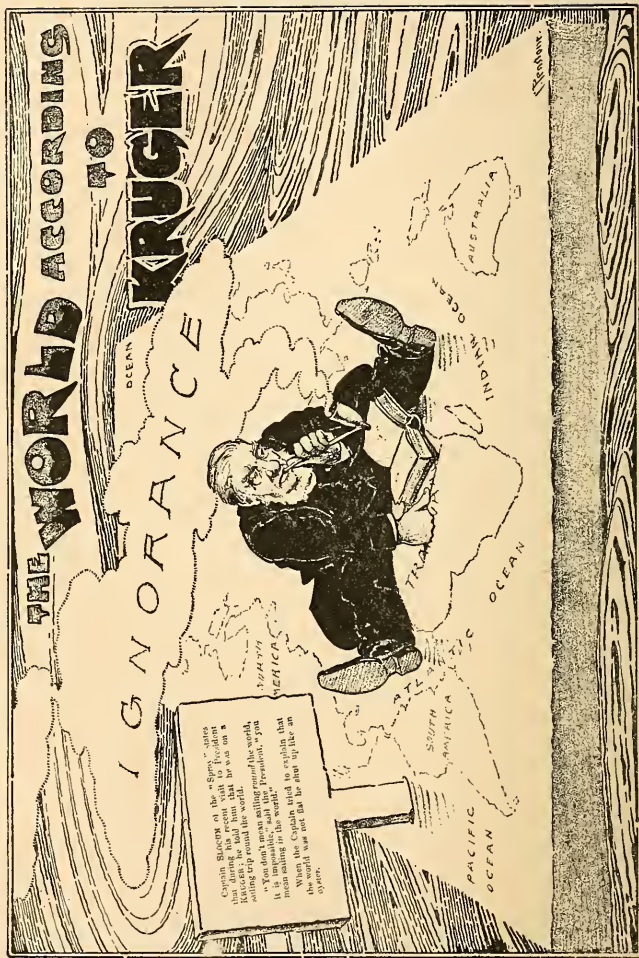 THE WORLD ACCORDING
TO
KRUGER
OCEAN
IGNORANCE
Captain SLOCUM of the "Spray" states
that during his recent visit to President
KRUGER; he told him that he was on a
sailing trip round the world.
"You don't mean sailing round the world,
it is impossible," said the President, "you
mean sailing in the world."
When the Captain tried to explain that
the world was not flat he shut up like an
oyster.
NORTH
AMERICA
ATLANTIC
OCEAN
SOUTH
AMERICA
PACIFIC
OCEAN
INDIAN OCEAN
AUSTRALIA